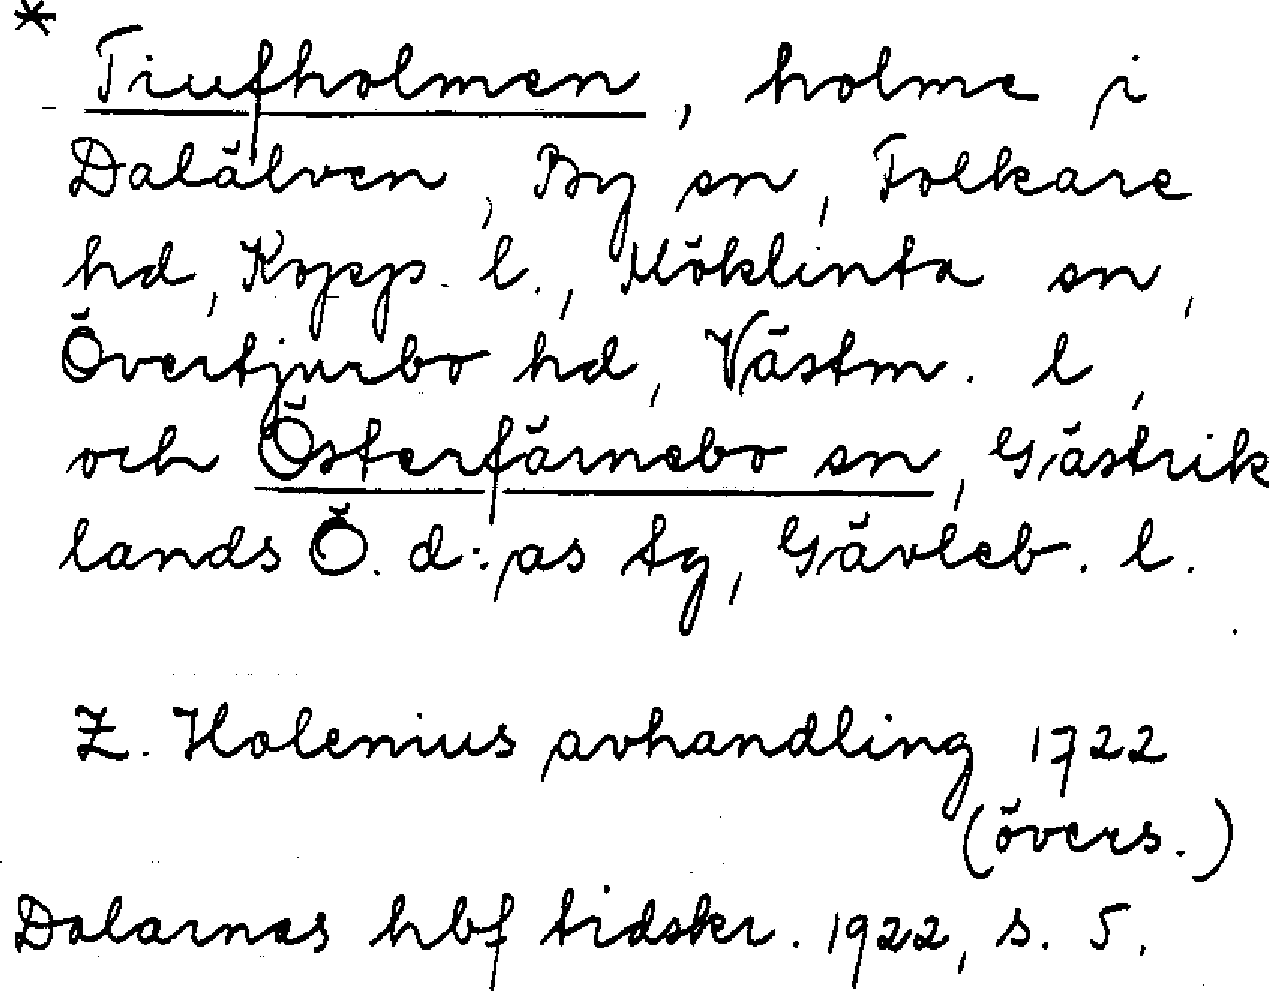 *
Tiufholmen, holme i
Dalälven, By sn, Folkare
hd, Kopp. l., Möklinta sn,
Övertjurbo hd, Västm. l,
och Österfärnebo sn, Gästrik
lands Ö. d:as tg, Gävleb. l.
Z. Holenius avhandling 1722
(övers.)
Dalarnas hbf tidskr. 1922, s. 5.